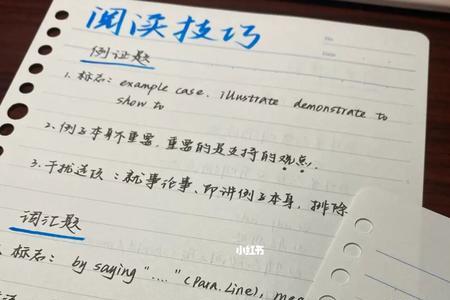 阅读技巧
例证题
1. 标志: example case. illustrate demonstrate to
show to
2. 例子本身不重要, 重要的是支持的观点!
3. 干扰选项: 就事论事、即讲例子本身, 排除
词汇题
标志: by saying "...." (Para. Line),
小红书